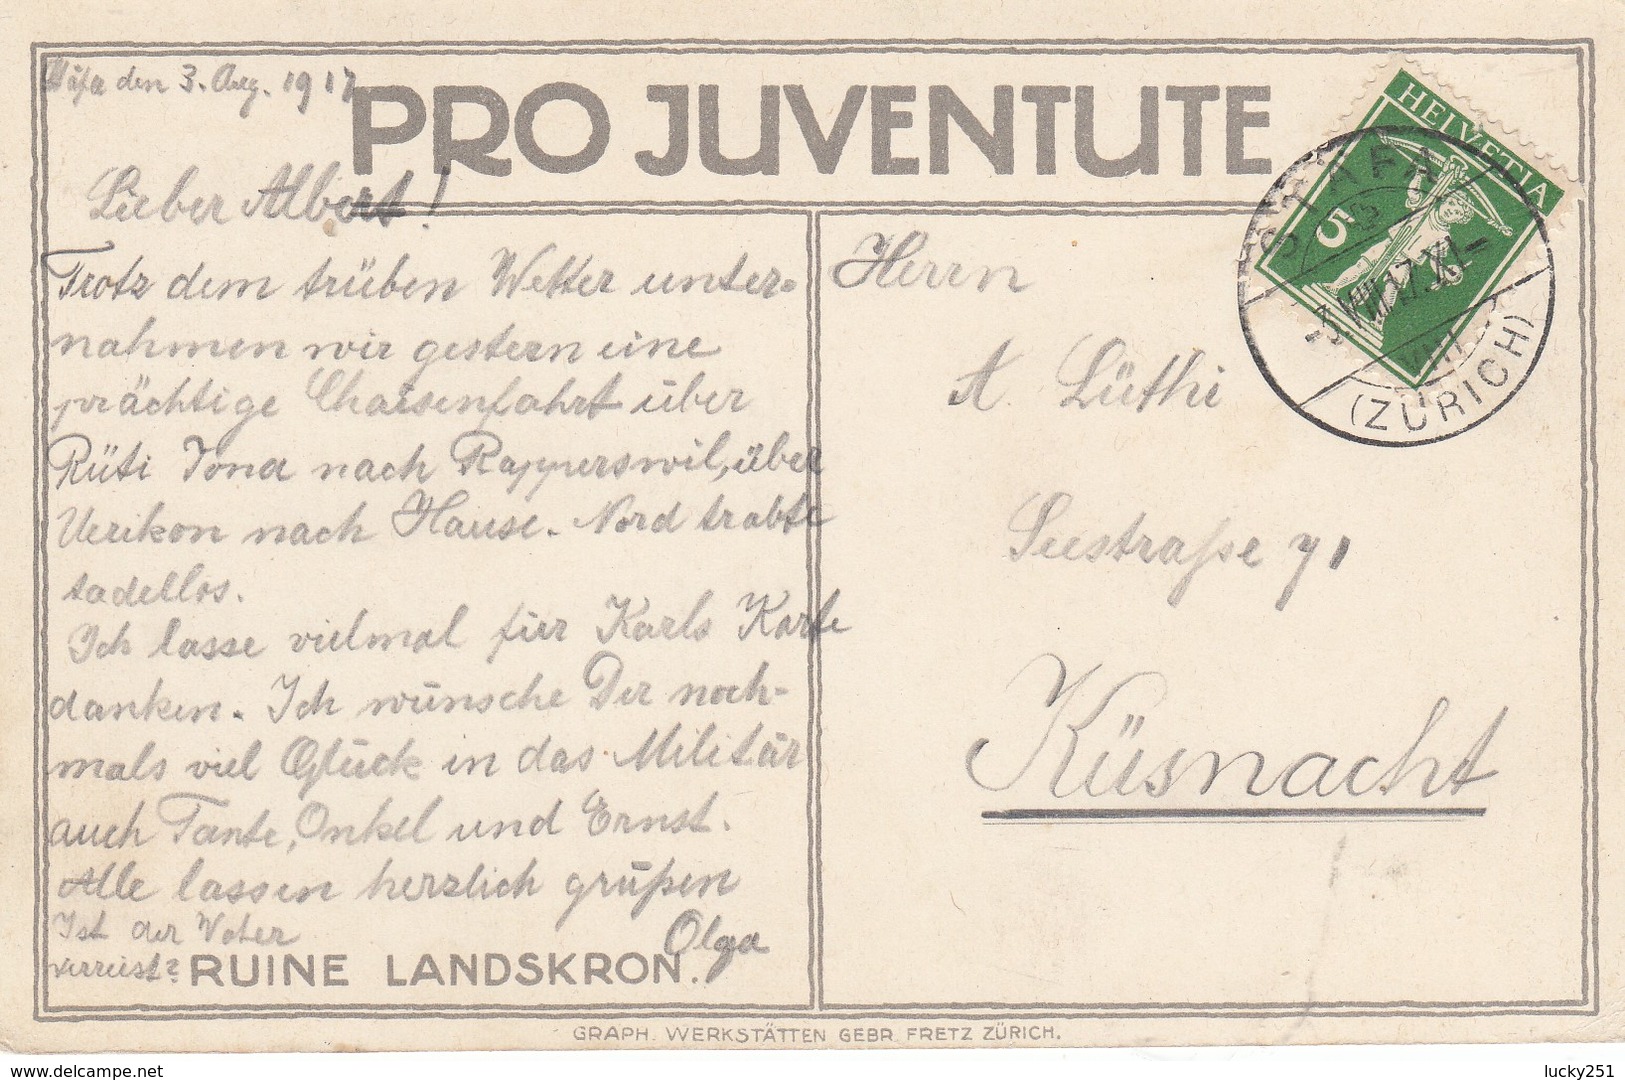 Stäfa den 3. Aug. 1917
PRO JUVENTUTE
Lieber Albert!
Trotz dem trüben Wetter unter-
nahmen wir gestern eine
prächtige Chaisenfahrt über
Rüti Jona nach Rapperswil, über
Uerikon nach Hause. Nord trabte
tadellos.
Ich lasse vielmal für Karls Karte
danken. Ich wünsche Dir noch-
mals viel Glück in das Militär
auch Tante, Onkel und Ernst.
Alle lassen herzlich grüßen
Olga
Ist der Vater
verreist?
RUINE LANDSKRON.
HELVETIA
5
STÄFA
-3.VIII.17.XI-
VIII
(ZÜRICH)
Herrn
A. Lüthi
Seestraße 71
Küsnacht
GRAPH. WERKSTÄTTEN GEBR. FRETZ ZÜRICH.
delcampe.net
lucky251